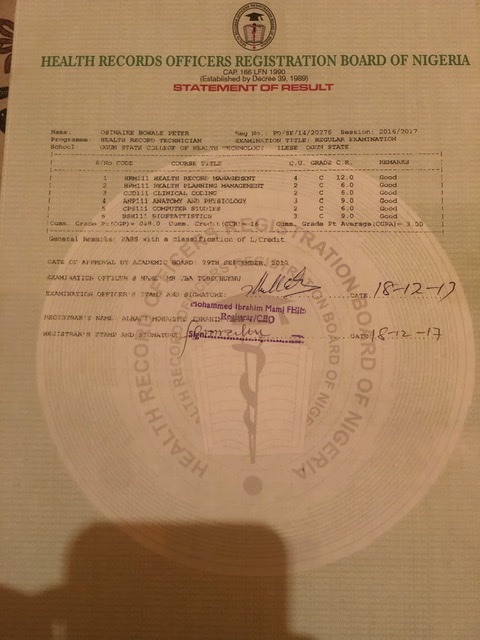 HEALTH RECORDS OFFICERS REGISTRATION BOARD OF NIGERIA
CAP. 166 LFN 1990
(Established by Decree 39, 1989)
STATEMENT OF RESULT
Name: BOWALE PETER Reg No.: PO/SF/14/20276 Session: 2016/2017
Programme: HEALTH RECORD TECHNICIAN EXAMINATION TITLE: REGULAR EXAMINATION
School OGUN STATE COLLEGE OF HEALTH TECHNOLOGY ILESE OGUN STATE
S/No CODE COURSE TITLE C.U. GRADE C.R. REMARKS
1 HRM111 HEALTH RECORD MANAGEMENT 4 C 12.0 Good
2 HPM111 HEALTH PLANNING MANAGEMENT 2 C 6.0 Good
3 CLINICAL CODING 2 C 6.0 Good
4 ANP111 ANATOMY AND PHYSIOLOGY 3 C 9.0 Good
5 CPS111 COMPUTER STUDIES 2 C 6.0 Good
6 BSH111 BIOSTATISTICS 3 C 9.0 Good
Cumm. Grade Pt(CGP)= Cumm. Credit(CCR)= 16 Cumm. Grade Pt Average(CGPA)= 3.00
General Remarks: PASS with a classification of L/Credit
DATE OF APPROVAL BY ACADEMIC BOARD: 29TH SEPTEMBER,
EXAMINATION OFFICER'S NAME: MR
EXAMINATION OFFICER'S STAMP AND SIGNATURE: DATE 18-12-17
Mohammed Ibrahim Mami FHIM
Registrar/CEO
REGISTRAR'S NAME: ALHAJI MOHAMMED IBRAHIM
REGISTRAR'S STAMP AND SIGNATORY: Sign: DATE: 18-12-17
HEALTH RECORDS OFFICERS REGISTRATION BOARD OF NIGERIA